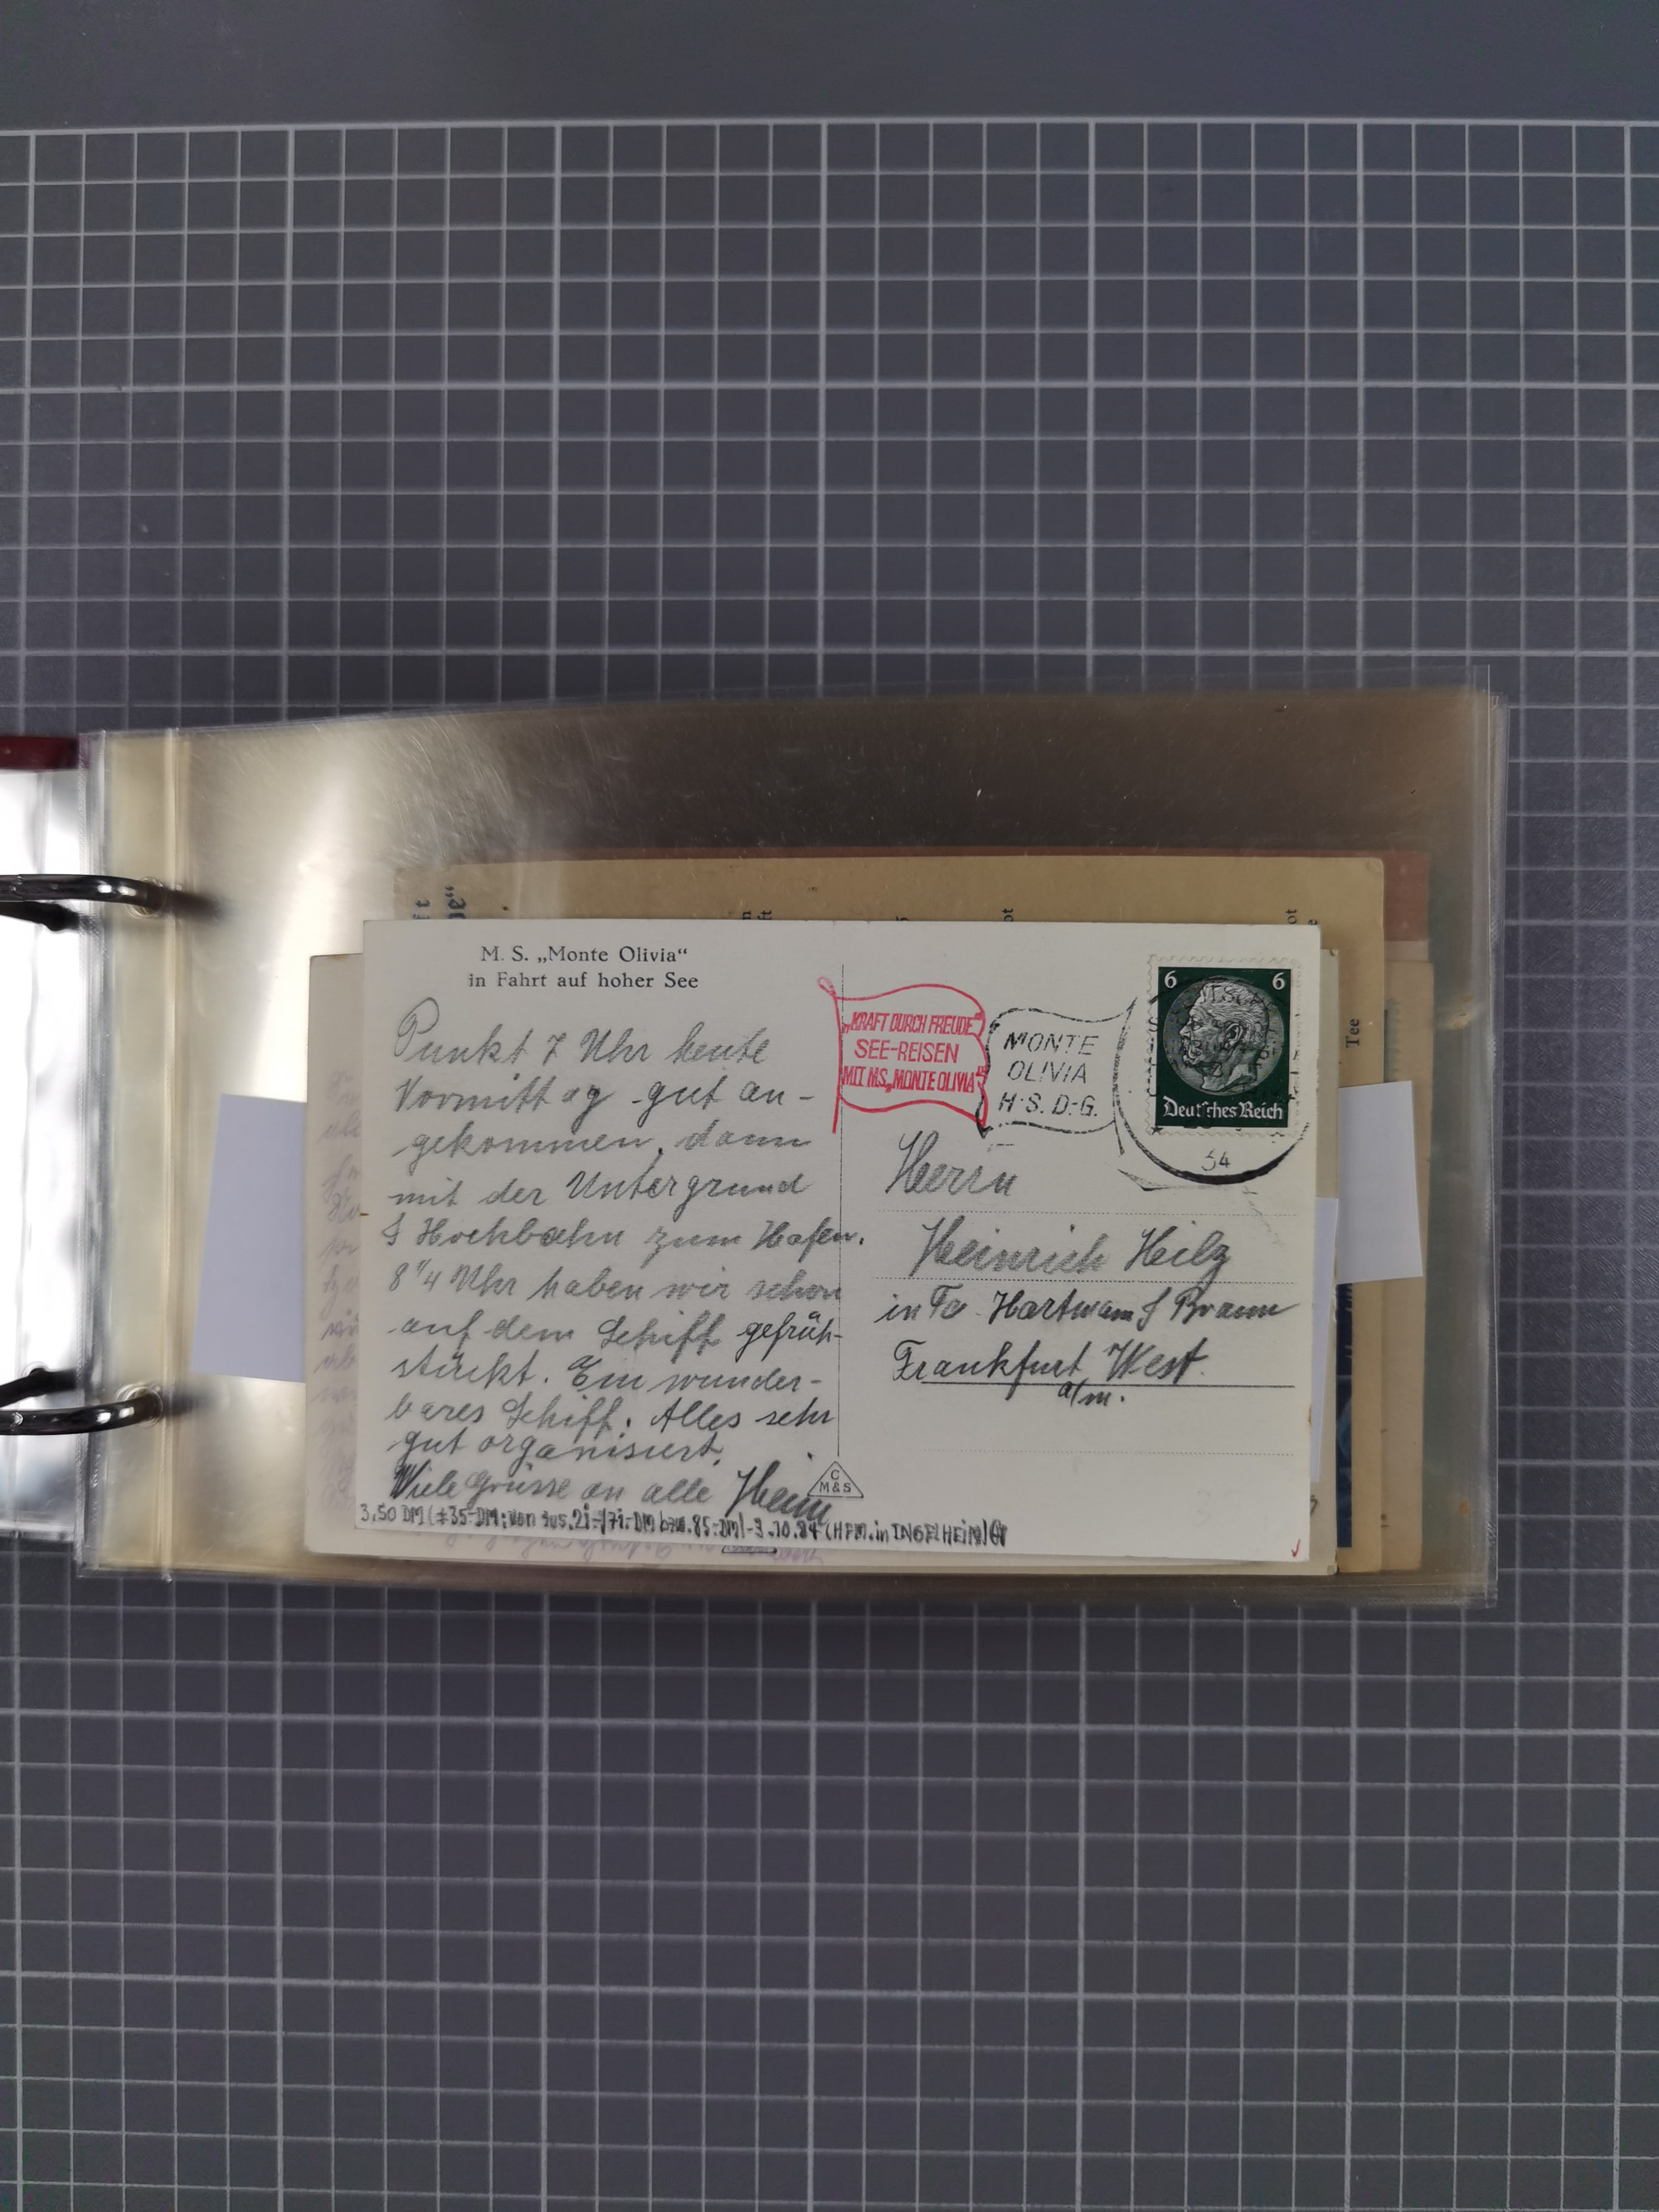 M. S. „Monte Olivia“
in Fahrt auf hoher See
Punkt 7 Uhr heute
Vormittag gut an-
gekommen, dann
mit der Untergrund
& Hochbahn zum Hafen.
8 1/4 Uhr haben wir schon
auf dem Schiff gefrüh-
stückt. Ein wunder-
bares Schiff. Alles sehr
gut organisiert.
Viele Grüsse an alle Heini
3,50 DM (±35-DM; von 85.-DM)-3.10.84 (HFM.in INGELHEIM)
C
M&S
„KRAFT DURCH FREUDE“
SEE-REISEN
MIT M.S. „MONTE OLIVIA“
MONTE
OLIVIA
H.S.D.G.
34
6 6
Deutsches Reich
Herrn
Heinrich Heilz
in Fa. Hartmann & Braun
Frankfurt West.
a/m.
Tee